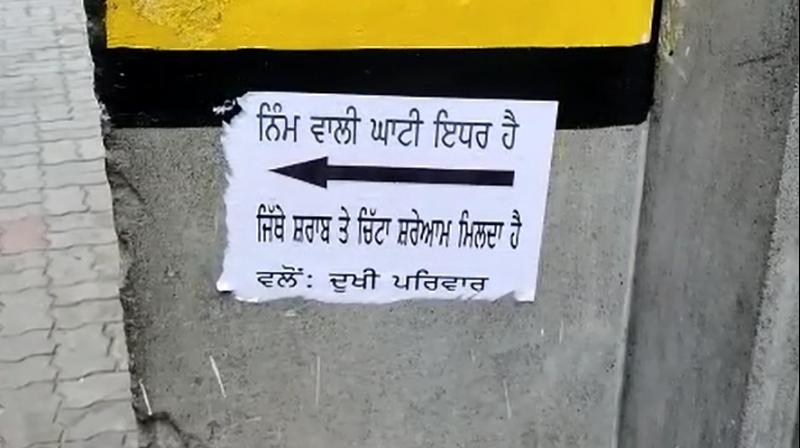 ਨਿੰਮ ਵਾਲੀ ਘਾਟੀ ਇਧਰ ਹੈ
ਜਿੱਥੇ ਸ਼ਰਾਬ ਤੇ ਚਿੱਟਾ ਸ਼ਰੇਆਮ ਮਿਲਦਾ ਹੈ
ਵਲੋਂ: ਦੁਖੀ ਪਰਿਵਾਰ